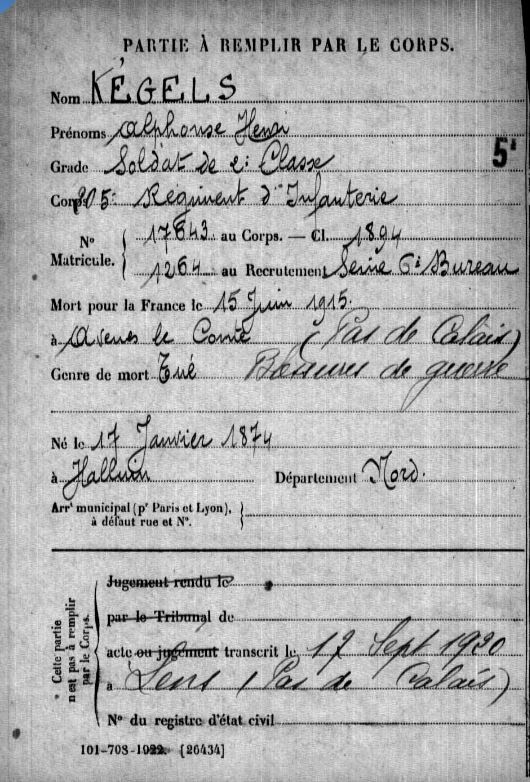 PARTIE À REMPLIR PAR LE CORPS.
Nom KÉGELS
Prénoms Alphonse Henri
5e
Grade Soldat de 2e Classe
Corps 205e Régiment d'Infanterie
No Matricule. { 17643 au Corps. — Cl. 1894
1264 au Recrutement Seine 6e Bureau
Mort pour la France le 15 Juin 1915.
à Avenes le Comte (Pas de Calais)
Genre de mort Tué Blessures de guerre
Né le 17 Janvier 1874
à Halluin Département Nord.
Arrt municipal (pr Paris et Lyon), à défaut rue et No. }
* Cette partie n'est pas à remplir par le Corps.
Jugement rendu le
par le Tribunal de
acte ou jugement transcrit le 12 Sept 1920
à Lens (Pas de Calais)
No du registre d'état civil
101-708-1922. [26434]